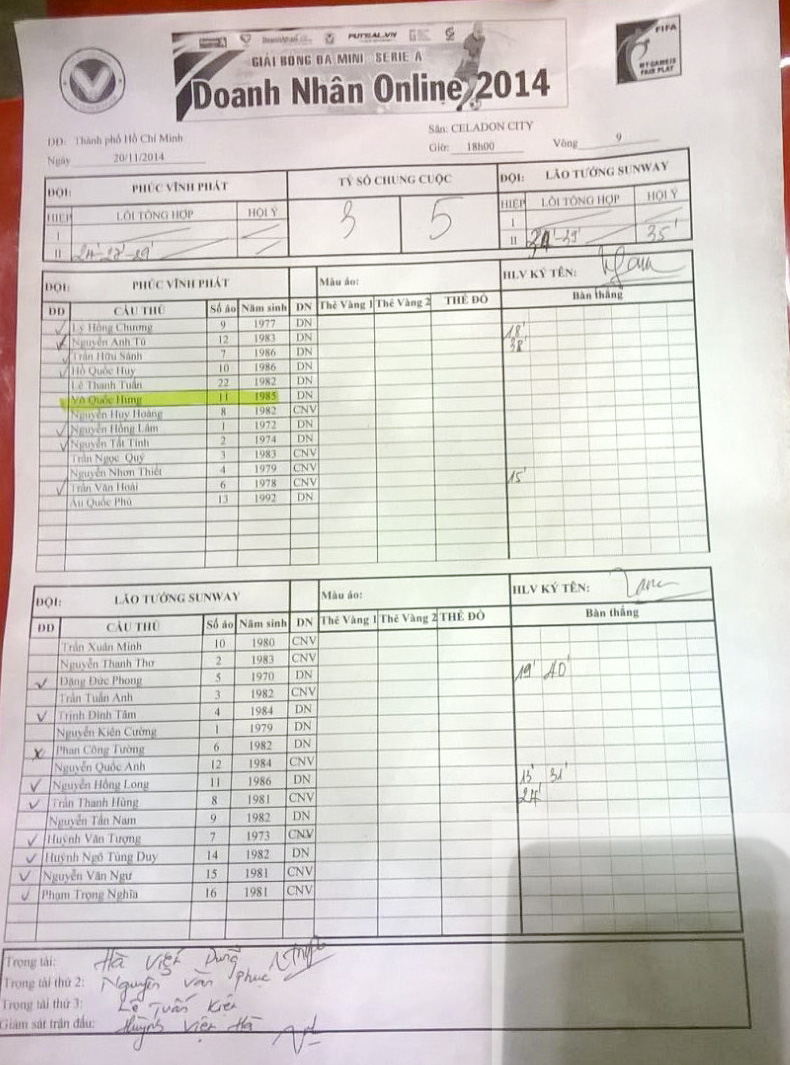 PUTSAL.VN
GIẢI BÓNG ĐÁ MINI SERIE A
Doanh Nhân Online 2014
FIFA
MY GAME IS
FAIR PLAY
DĐ: Thành phố Hồ Chí Minh
Sân: CELADON CITY
Ngày 20/11/2014
Giờ: 18h00 Vòng 9
ĐỘI: PHÚC VĨNH PHÁT TỶ SỐ CHUNG CUỘC ĐỘI: LÃO TƯỚNG SUNWAY
HIỆP LỖI TỔNG HỢP HỘI Ý 3 5 HIỆP LỖI TỔNG HỢP HỘI Ý
I I
II 24'-27'-29' II 34'-39' 35'
ĐỘI: PHÚC VĨNH PHÁT Màu áo: HLV KÝ TÊN:
DD CẦU THỦ Số áo Năm sinh DN Thẻ Vàng 1 Thẻ Vàng 2 THẺ ĐỎ Bàn thắng
Lý Hồng Chương 9 1977 DN 18'
Nguyễn Anh Tú 12 1983 DN 38'
Trần Hữu Sảnh 7 1986 DN
Hồ Quốc Huy 10 1986 DN
Lê Thanh Tuấn 22 1982 DN
Võ Quốc Hưng 11 1985 DN
Nguyễn Huy Hoàng 8 1982 CNV
Nguyễn Hồng Lâm 1 1972 DN
Nguyễn Tất Tính 2 1974 DN
Trần Ngọc Quý 3 1983 CNV
Nguyễn Nhơn Thiết 4 1979 CNV
Trần Văn Hoài 6 1978 CNV 15'
Âu Quốc Phú 13 1992 DN
ĐỘI: LÃO TƯỚNG SUNWAY Màu áo: HLV KÝ TÊN:
DD CẦU THỦ Số áo Năm sinh DN Thẻ Vàng 1 Thẻ Vàng 2 THẺ ĐỎ Bàn thắng
Trần Xuân Minh 10 1980 CNV
Nguyễn Thanh Thơ 2 1983 CNV
Đặng Đức Phong 5 1970 DN 19' 40'
Trần Tuấn Anh 3 1982 CNV
Trịnh Đình Tâm 4 1984 DN
Nguyễn Kiên Cường 1 1979 DN
Phan Công Tường 6 1982 DN
Nguyễn Quốc Anh 12 1984 CNV
Nguyễn Hồng Long 11 1986 DN 13' 31'
Trần Thanh Hùng 8 1981 CNV 24'
Nguyễn Tấn Nam 9 1982 DN
Huỳnh Văn Tượng 7 1973 CNV
Huỳnh Ngô Tùng Duy 14 1982 DN
Nguyễn Văn Ngư 15 1981 CNV
Phạm Trọng Nghĩa 16 1981 CNV
Trọng tài: Hà Việt Dũng
Trọng tài thứ 2: Nguyễn Văn Phục
Trọng tài thứ 3: Lê Tuấn Kiệt
Giám sát trận đấu: Huỳnh Việt Hà